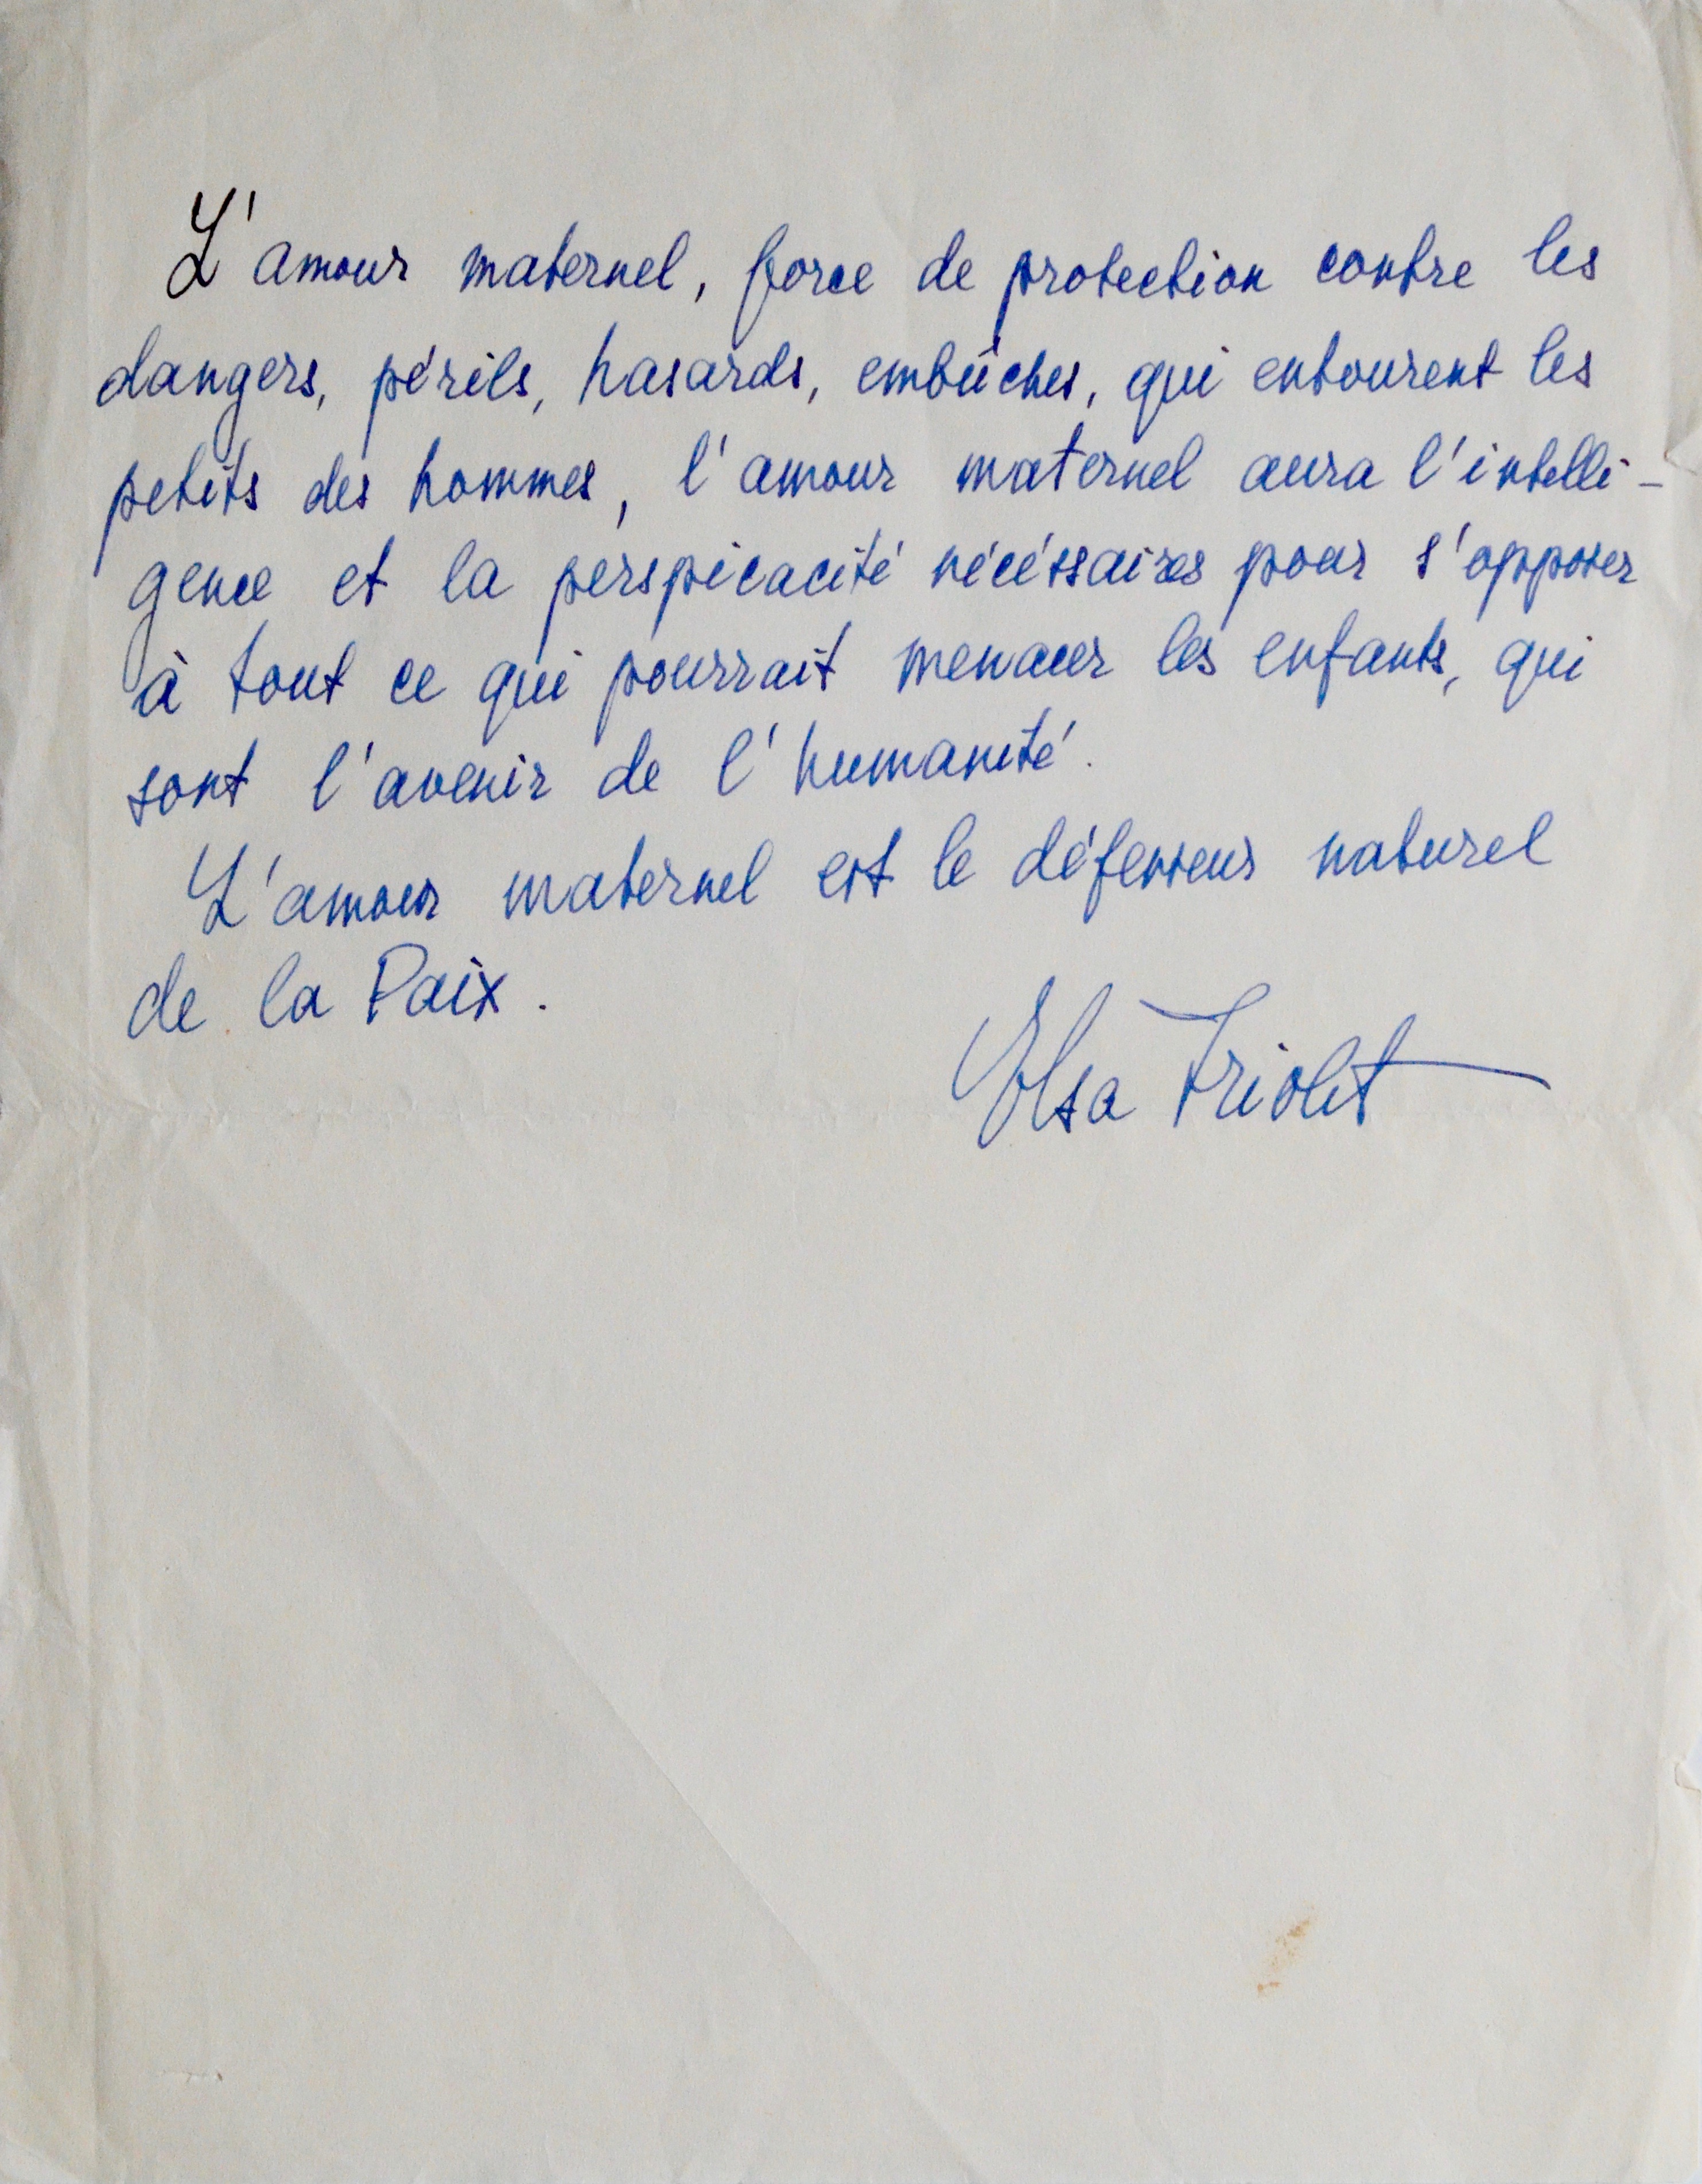 L'amour maternel, force de protection contre les
dangers, périls, hasards, embûches, qui entourent les
petits des hommes, l'amour maternel aura l'intelli-
gence et la perspicacité nécéssaires pour s'opposer
à tout ce qui pourrait menacer les enfants, qui
sont l'avenir de l'humanité.
L'amour maternel est le défenseur naturel
de la Paix.
Elsa Triolet